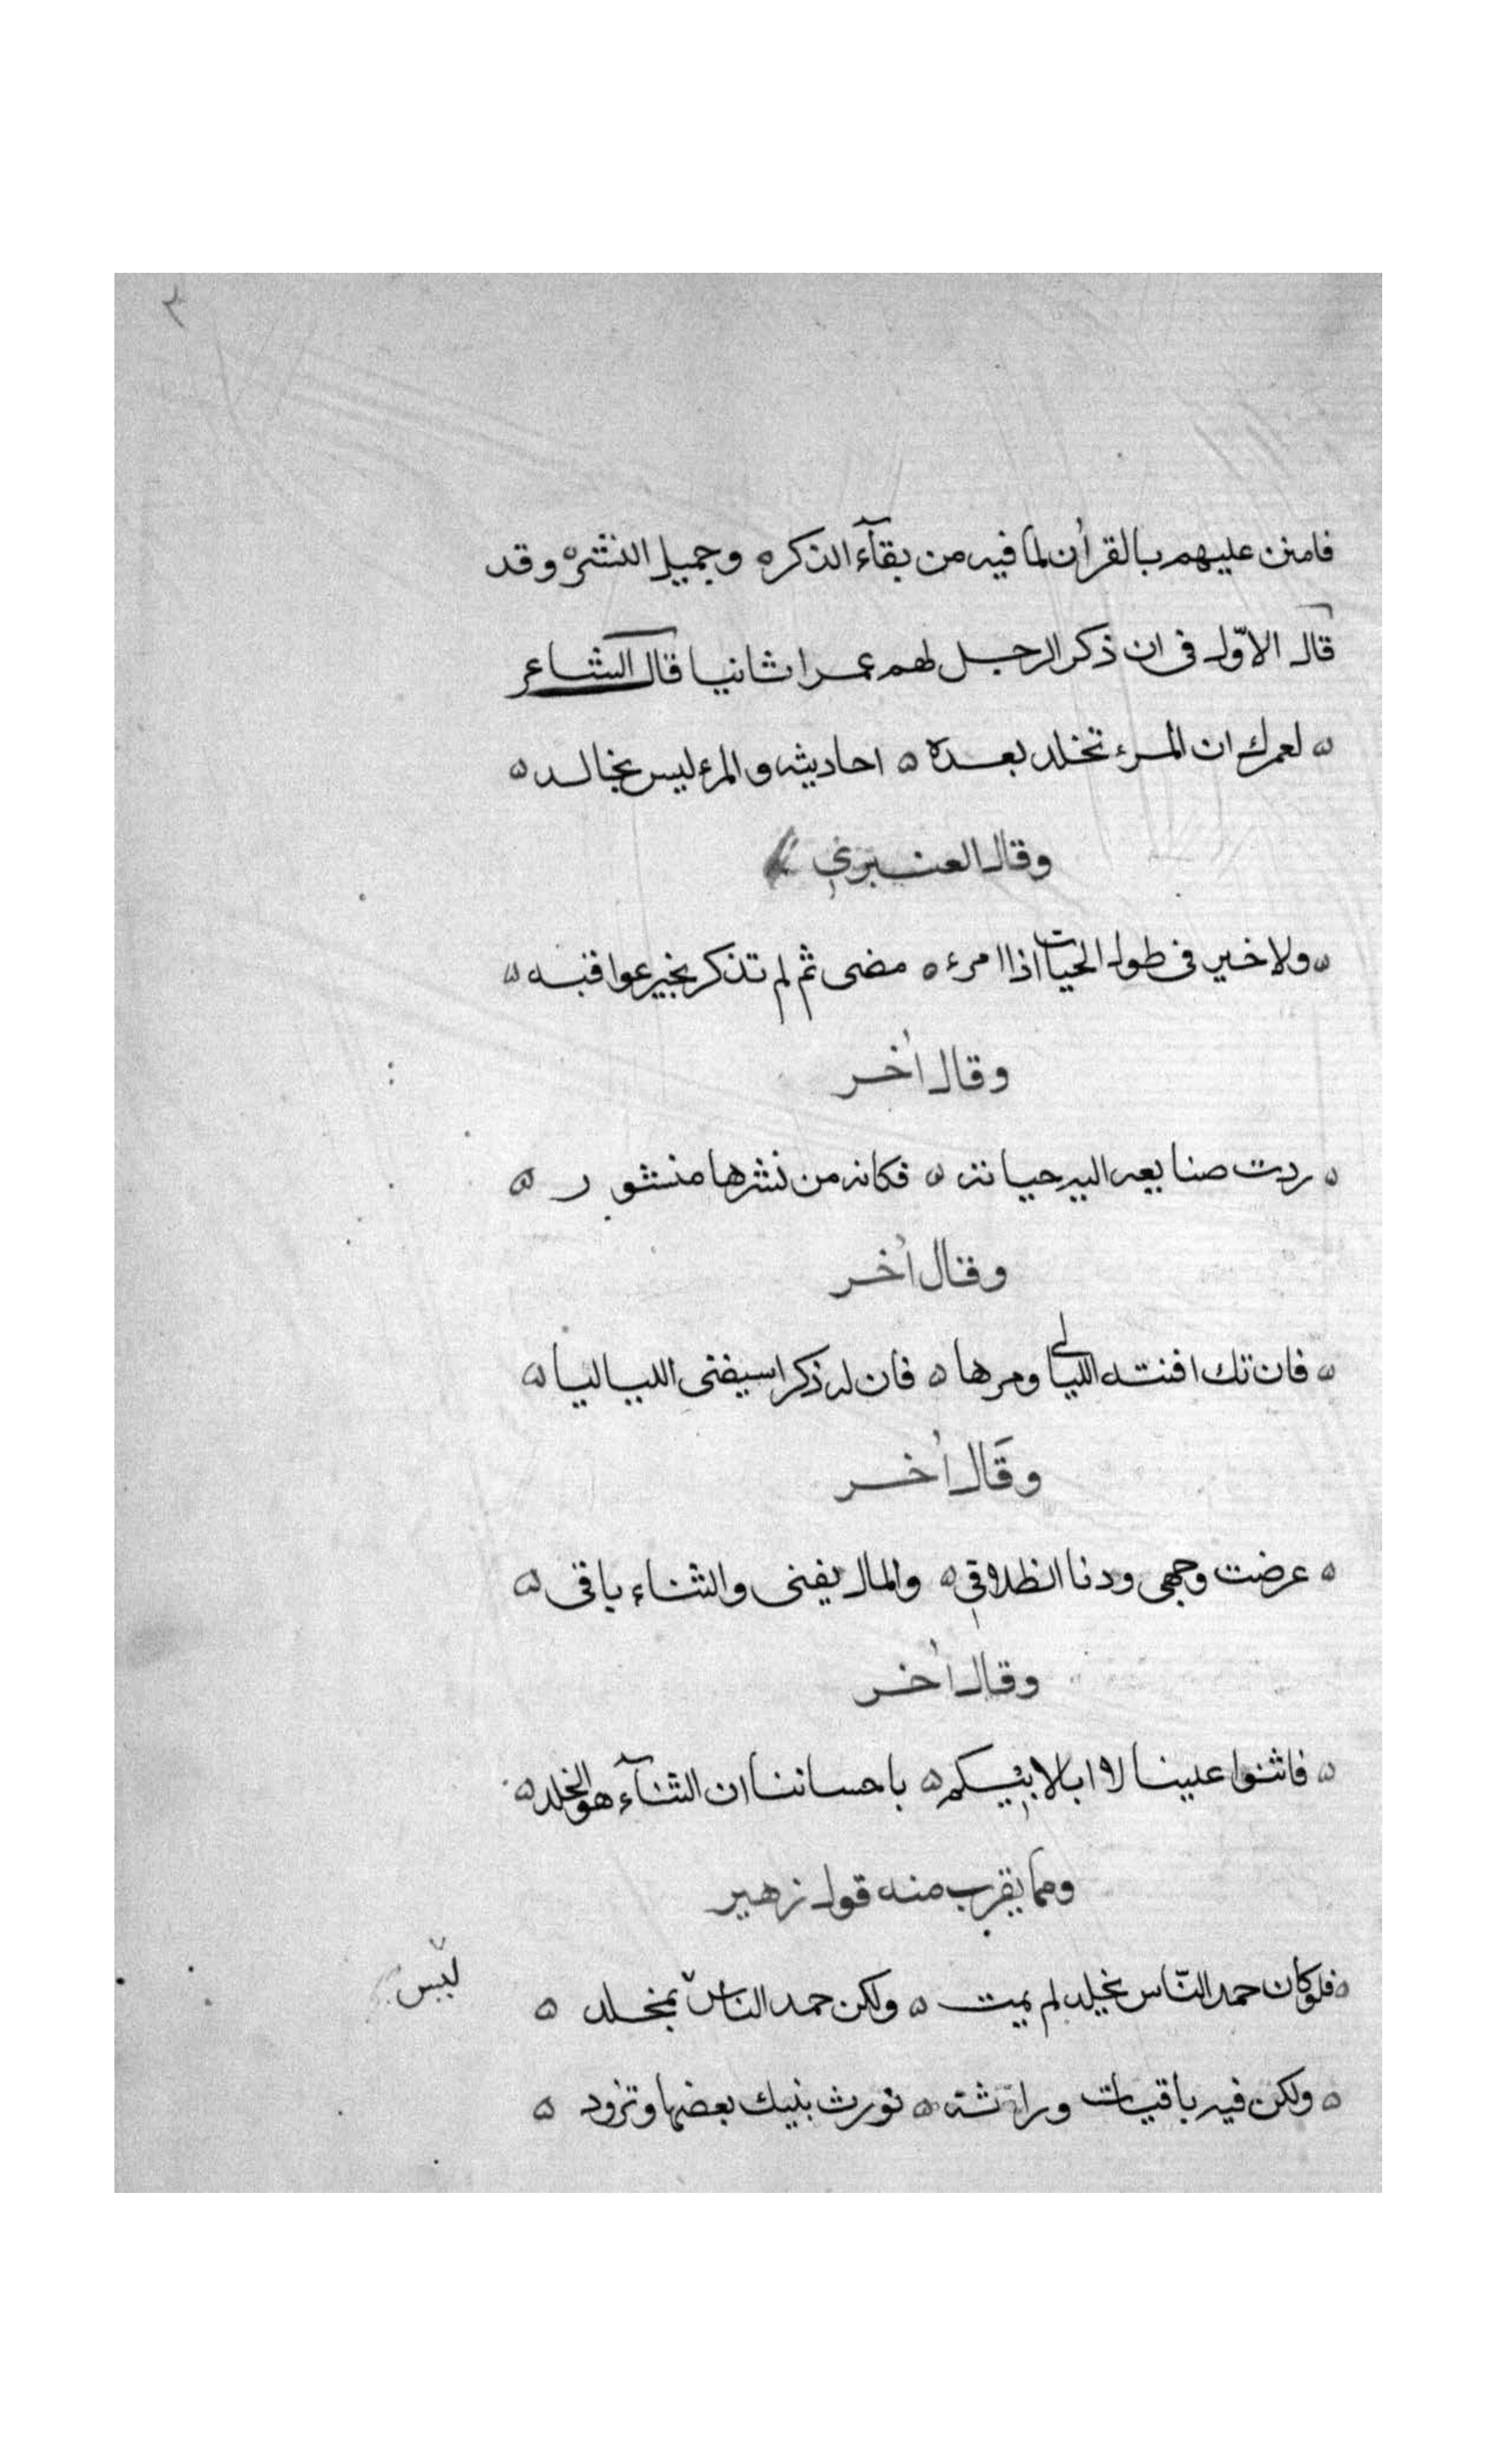 ٣
فامتن عليهم بالقرآن لما فيه من بقآء الذكر ه وجميل النشر ه وقد
قال الاوّل فى ان ذكر الرجل لهم عمرا ثانيا قال الشاعر
ه لعمرك ان المرء تخلد بعده ه احاديثه والمرء ليس بخالد ه
وقال العنبري
ه ولا خير فى طول الحيات اذا امرء ه مضى ثم لم تذكر بخير عواقبه ه
وقال اٰخر
ه ردت صنايعه اليه حياته ه فكانه من نشرها منشور ه
وقال اٰخر
ه فان تك افنته الليالى ومرها ه فان له ذكرا سيفنى اللياليا ه
وقال اٰخر
ه عرضت وجهى ودنا ه والمال يفنى والثناء باقى ه
وقال اٰخر
ه فاثنوا علينا لا ابا لابيكم ه باحساننا ان الثنآء هو الخلد ه
ومما يقرب منه قول زهير
ه فلو كان حمد النّاس يخلد لم يمت ه ولكن حمد الناس بمخلد ه
ليس
ه ولكن فيه باقيات وراثة ه تورث بنيك بعضها وتزود ه